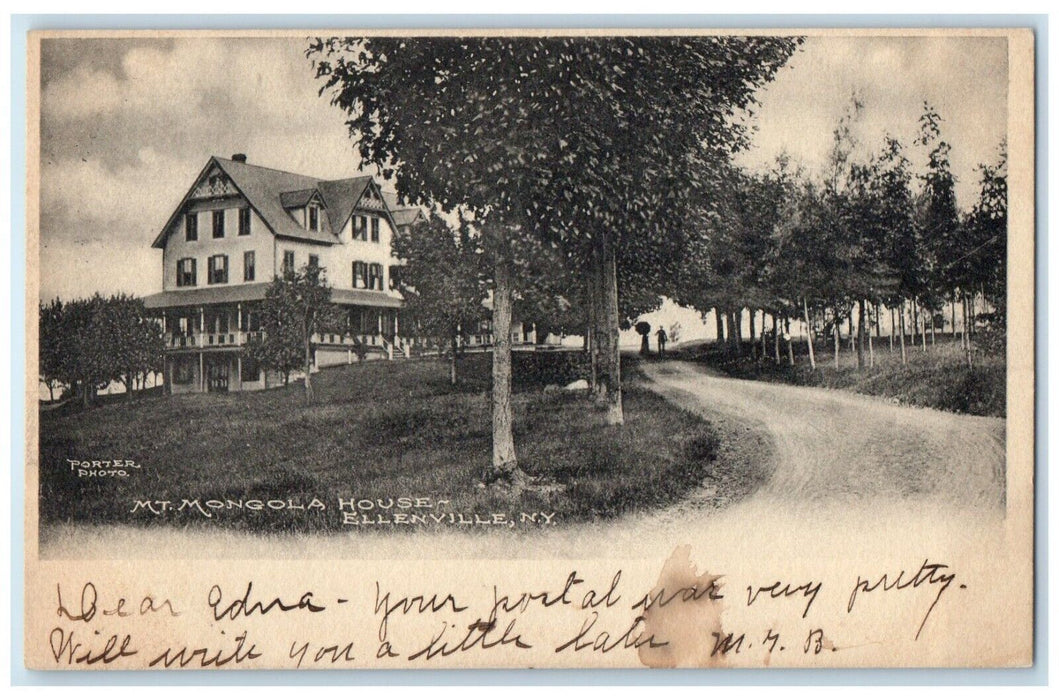 PORTER
PHOTO.
MT. MONGOLA HOUSE -
ELLENVILLE, N.Y.
Dear Edna - Your postal was very pretty.
Will write you a little later M. Y. B.